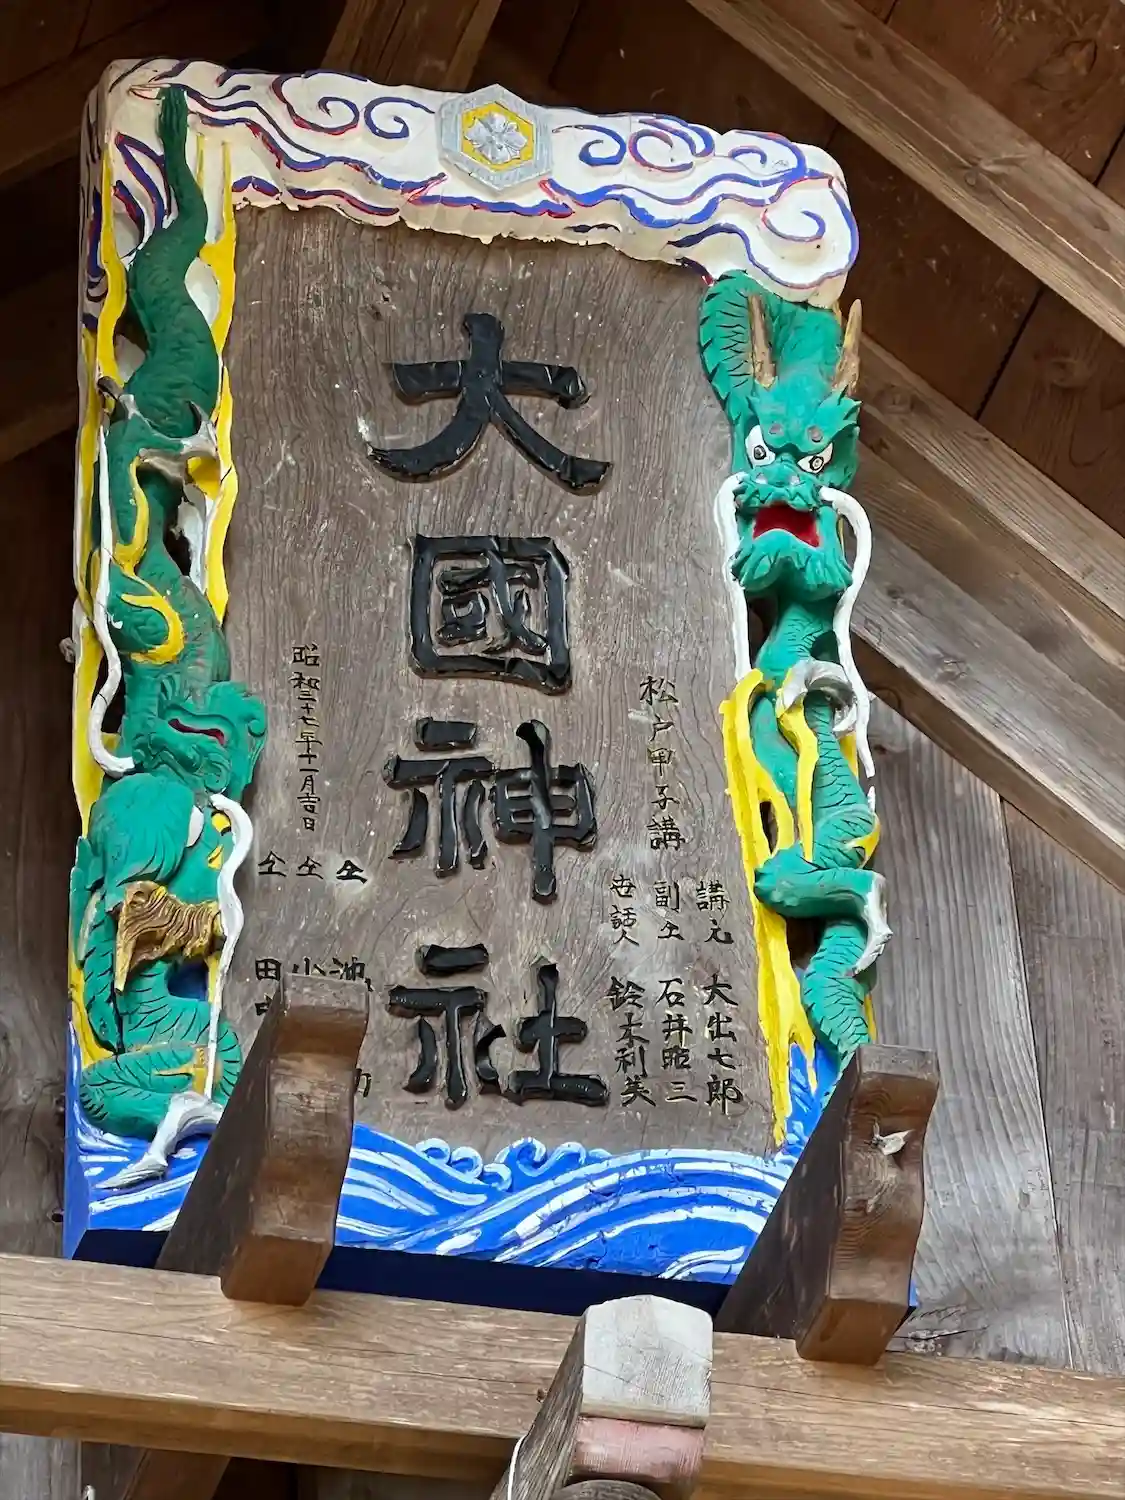 大國神社
松戸甲子講
講元 大出七郎
副仝 石井昭三
世話人 鈴木利美
仝
仝 小
仝 田
昭和三十七年十一月吉日